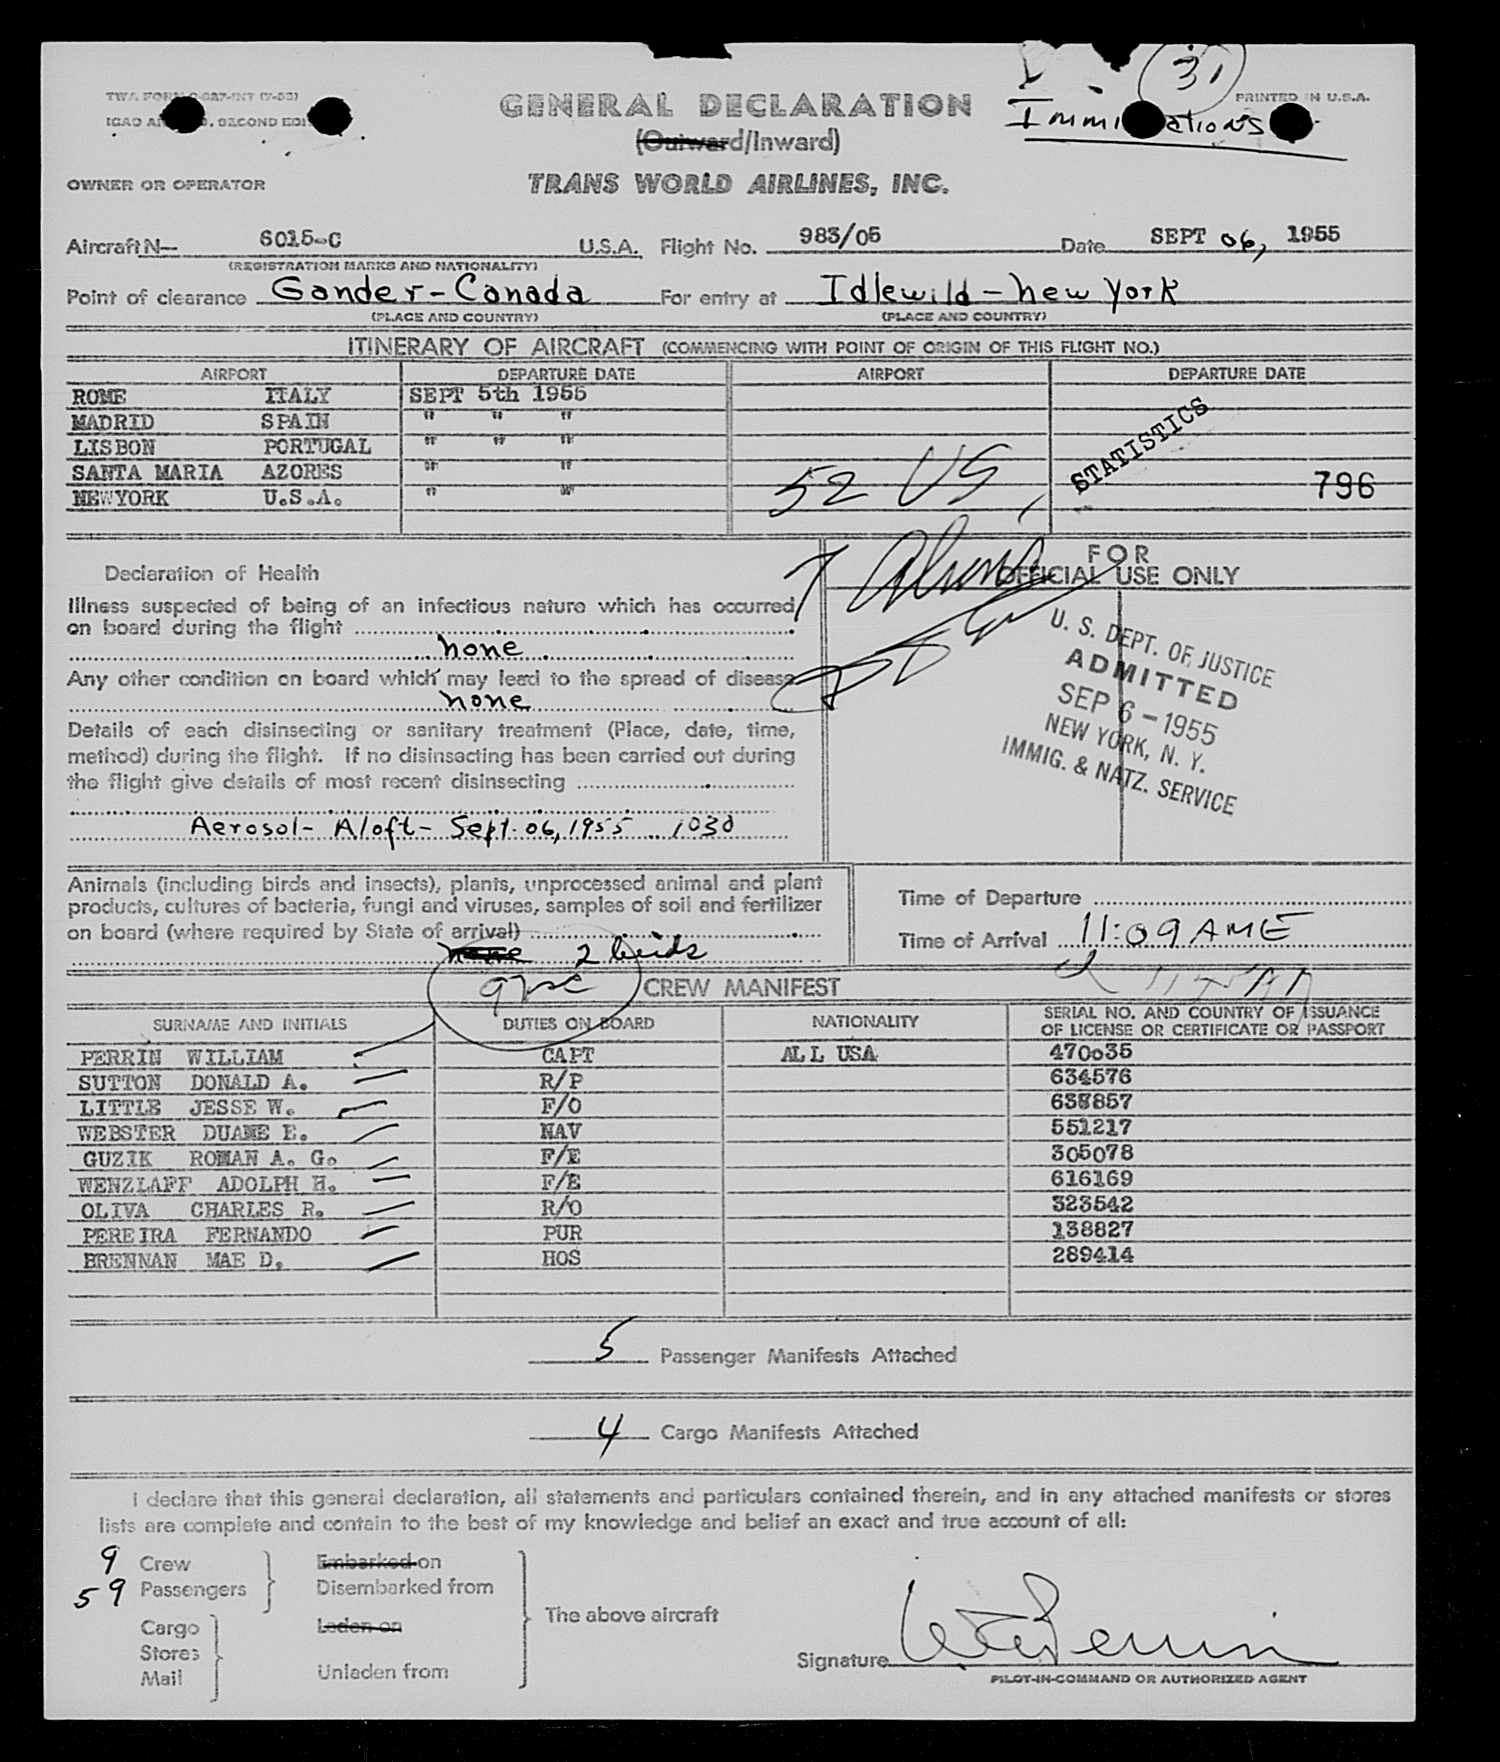 31
TWA FORM C-927-INT (7-53)
PRINTED IN U.S.A.
SECOND EDI
GENERAL DECLARATION
Immi ations
(Outward/Inward)
OWNER OR OPERATOR
TRANS WORLD AIRLINES, INC.
Aircraft N— 6015-C U.S.A. Flight No. 983/05 Date SEPT 06, 1955
(REGISTRATION MARKS AND NATIONALITY)
Point of clearance Gander-Canada For entry at Idlewild-New York
(PLACE AND COUNTRY) (PLACE AND COUNTRY)
ITINERARY OF AIRCRAFT (COMMENCING WITH POINT OF ORIGIN OF THIS FLIGHT NO.)
AIRPORT DEPARTURE DATE AIRPORT DEPARTURE DATE
ROME ITALY SEPT 5th 1955
MADRID SPAIN " " "
LISBON PORTUGAL " " "
SANTA MARIA AZORES " "
NEWYORK U.S.A. " "
52 US
STATISTICS
796
7 Aliens
FOR
OFFICIAL USE ONLY
Declaration of Health
Illness suspected of being of an infectious nature which has occurred
on board during the flight
none
Any other condition on board which may lead to the spread of disease
none
Details of each disinsecting or sanitary treatment (Place, date, time,
method) during the flight. If no disinsecting has been carried out during
the flight give details of most recent disinsecting
Aerosol- Aloft- Sept. 06, 1955 1030
U. S. DEPT. OF JUSTICE
ADMITTED
SEP 6 - 1955
NEW YORK, N. Y.
IMMIG. & NATZ. SERVICE
Animals (including birds and insects), plants, unprocessed animal and plant
products, cultures of bacteria, fungi and viruses, samples of soil and fertilizer
on board (where required by State of arrival)
none 2 birds
Time of Departure
Time of Arrival 11:09 AME
CREW MANIFEST
SURNAME AND INITIALS DUTIES ON BOARD NATIONALITY SERIAL NO. AND COUNTRY OF ISSUANCE
OF LICENSE OR CERTIFICATE OR PASSPORT
PERRIN WILLIAM CAPT ALL USA 470035
SUTTON DONALD A. R/P 634576
LITTLE JESSE W. F/O 638857
WEBSTER DUANE E. NAV 551217
GUZIK ROMAN A. G. F/E 305078
WENZLAFF ADOLPH H. F/E 616169
OLIVA CHARLES R. R/O 323542
PEREIRA FERNANDO PUR 138827
BRENNAN MAE D. HOS 289414
5 Passenger Manifests Attached
4 Cargo Manifests Attached
I declare that this general declaration, all statements and particulars contained therein, and in any attached manifests or stores
lists are complete and contain to the best of my knowledge and belief an exact and true account of all:
9 Crew
59 Passengers
Embarked on
Disembarked from
Cargo
Stores
Mail
Laden on
Unladen from
The above aircraft
Signature
PILOT-IN-COMMAND OR AUTHORIZED AGENT